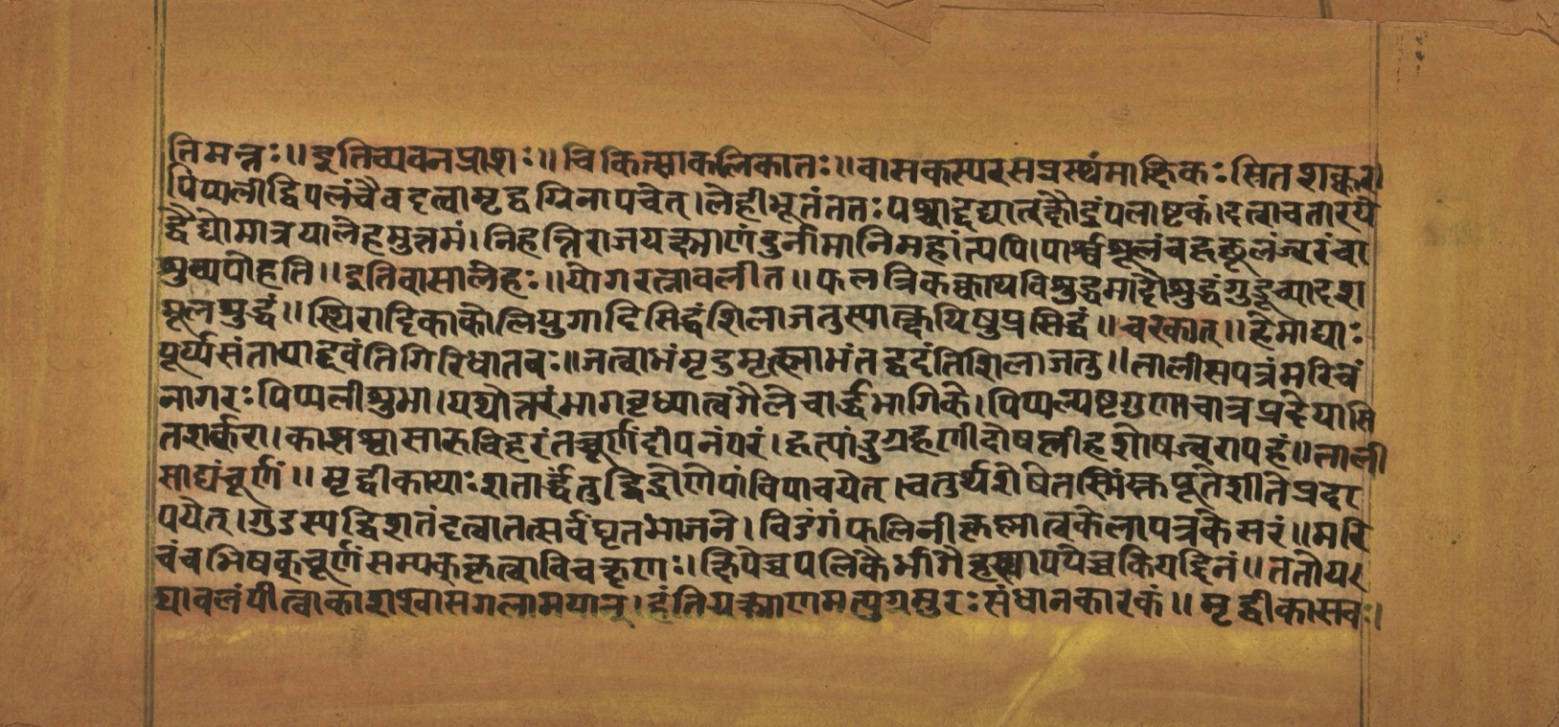 तिमन्नः॥ इतिच्यवनप्राशः॥ चिकित्साकलिकातः॥ वासकस्परसप्रस्थंमाक्षिकः सितशर्क्करा
पिप्पलीद्विपलंचैवदृत्वामृद्वग्निनापचेत्। लेहीभूतंततःपश्चाद्दद्यात्क्षौद्रंपलाष्टकं। दत्वाचतारयै
द्वैद्योमात्रयालेहमुत्तमं। निहन्तिराजयक्ष्माणंदुर्नामानिमहांत्यपि। पार्श्वशूलंचहृछूलंज्वरंचा
शुव्यपोहति॥ इतिवासालेहः॥ योगरत्नावलीत॥ फलत्रिकक्काथविशुद्धमादौशुद्धंगुडूच्यादश
मूलशुद्धं॥ स्थिरादिकाकौलियुगादिसिद्धंशिलाजतुस्यात्क्षयिषुप्रसिद्धं॥ चरकात्॥ हेमाद्याः
पूर्य्यसंतापाद्द्रवंतिगिरिधातवः॥ जत्वाभंमृदुमृत्स्नाभंतद्वदंतिशिलाजतु॥ तालीसपत्रंमरिचं
नागरःपिप्पलीशुभा। यथोत्तरंभागवृध्यात्वंगैलेचार्द्धभागिके। पिप्पल्यष्टगुणाचात्रप्रदेयासि
तशर्करा। कासश्वासारुविहरंतच्चूर्णंदीपनंपरं। हृत्पांडुग्रहणीदोषप्लीहशोषज्वरापहं॥ ताली
साद्यंचूर्णं॥ मृद्वीकायाःशतार्द्धंतुद्विद्रोणेपांविपाचयेत्। चतुर्थशेषेतस्मिंस्कपूतेशीतेप्रदा
पयेत्। गुडस्यद्विशतंदृत्वातत्सर्वंघृतभाजने। विडंगंफलिनीकृष्णात्वकेलापत्रकेसरं॥ मरि
चंचभिषक्चूर्णंसम्यक्कृत्वाविचक्षणः। क्षिपेच्चपलिकैर्भागैदृस्थापयेच्चकियद्दिनं॥ ततोयर
द्याबलंपीत्वाकाशश्वासगलामयान्। हंतियक्ष्माणमत्युग्रमुरःसंधानकारकं॥ मृद्वीकासवः।